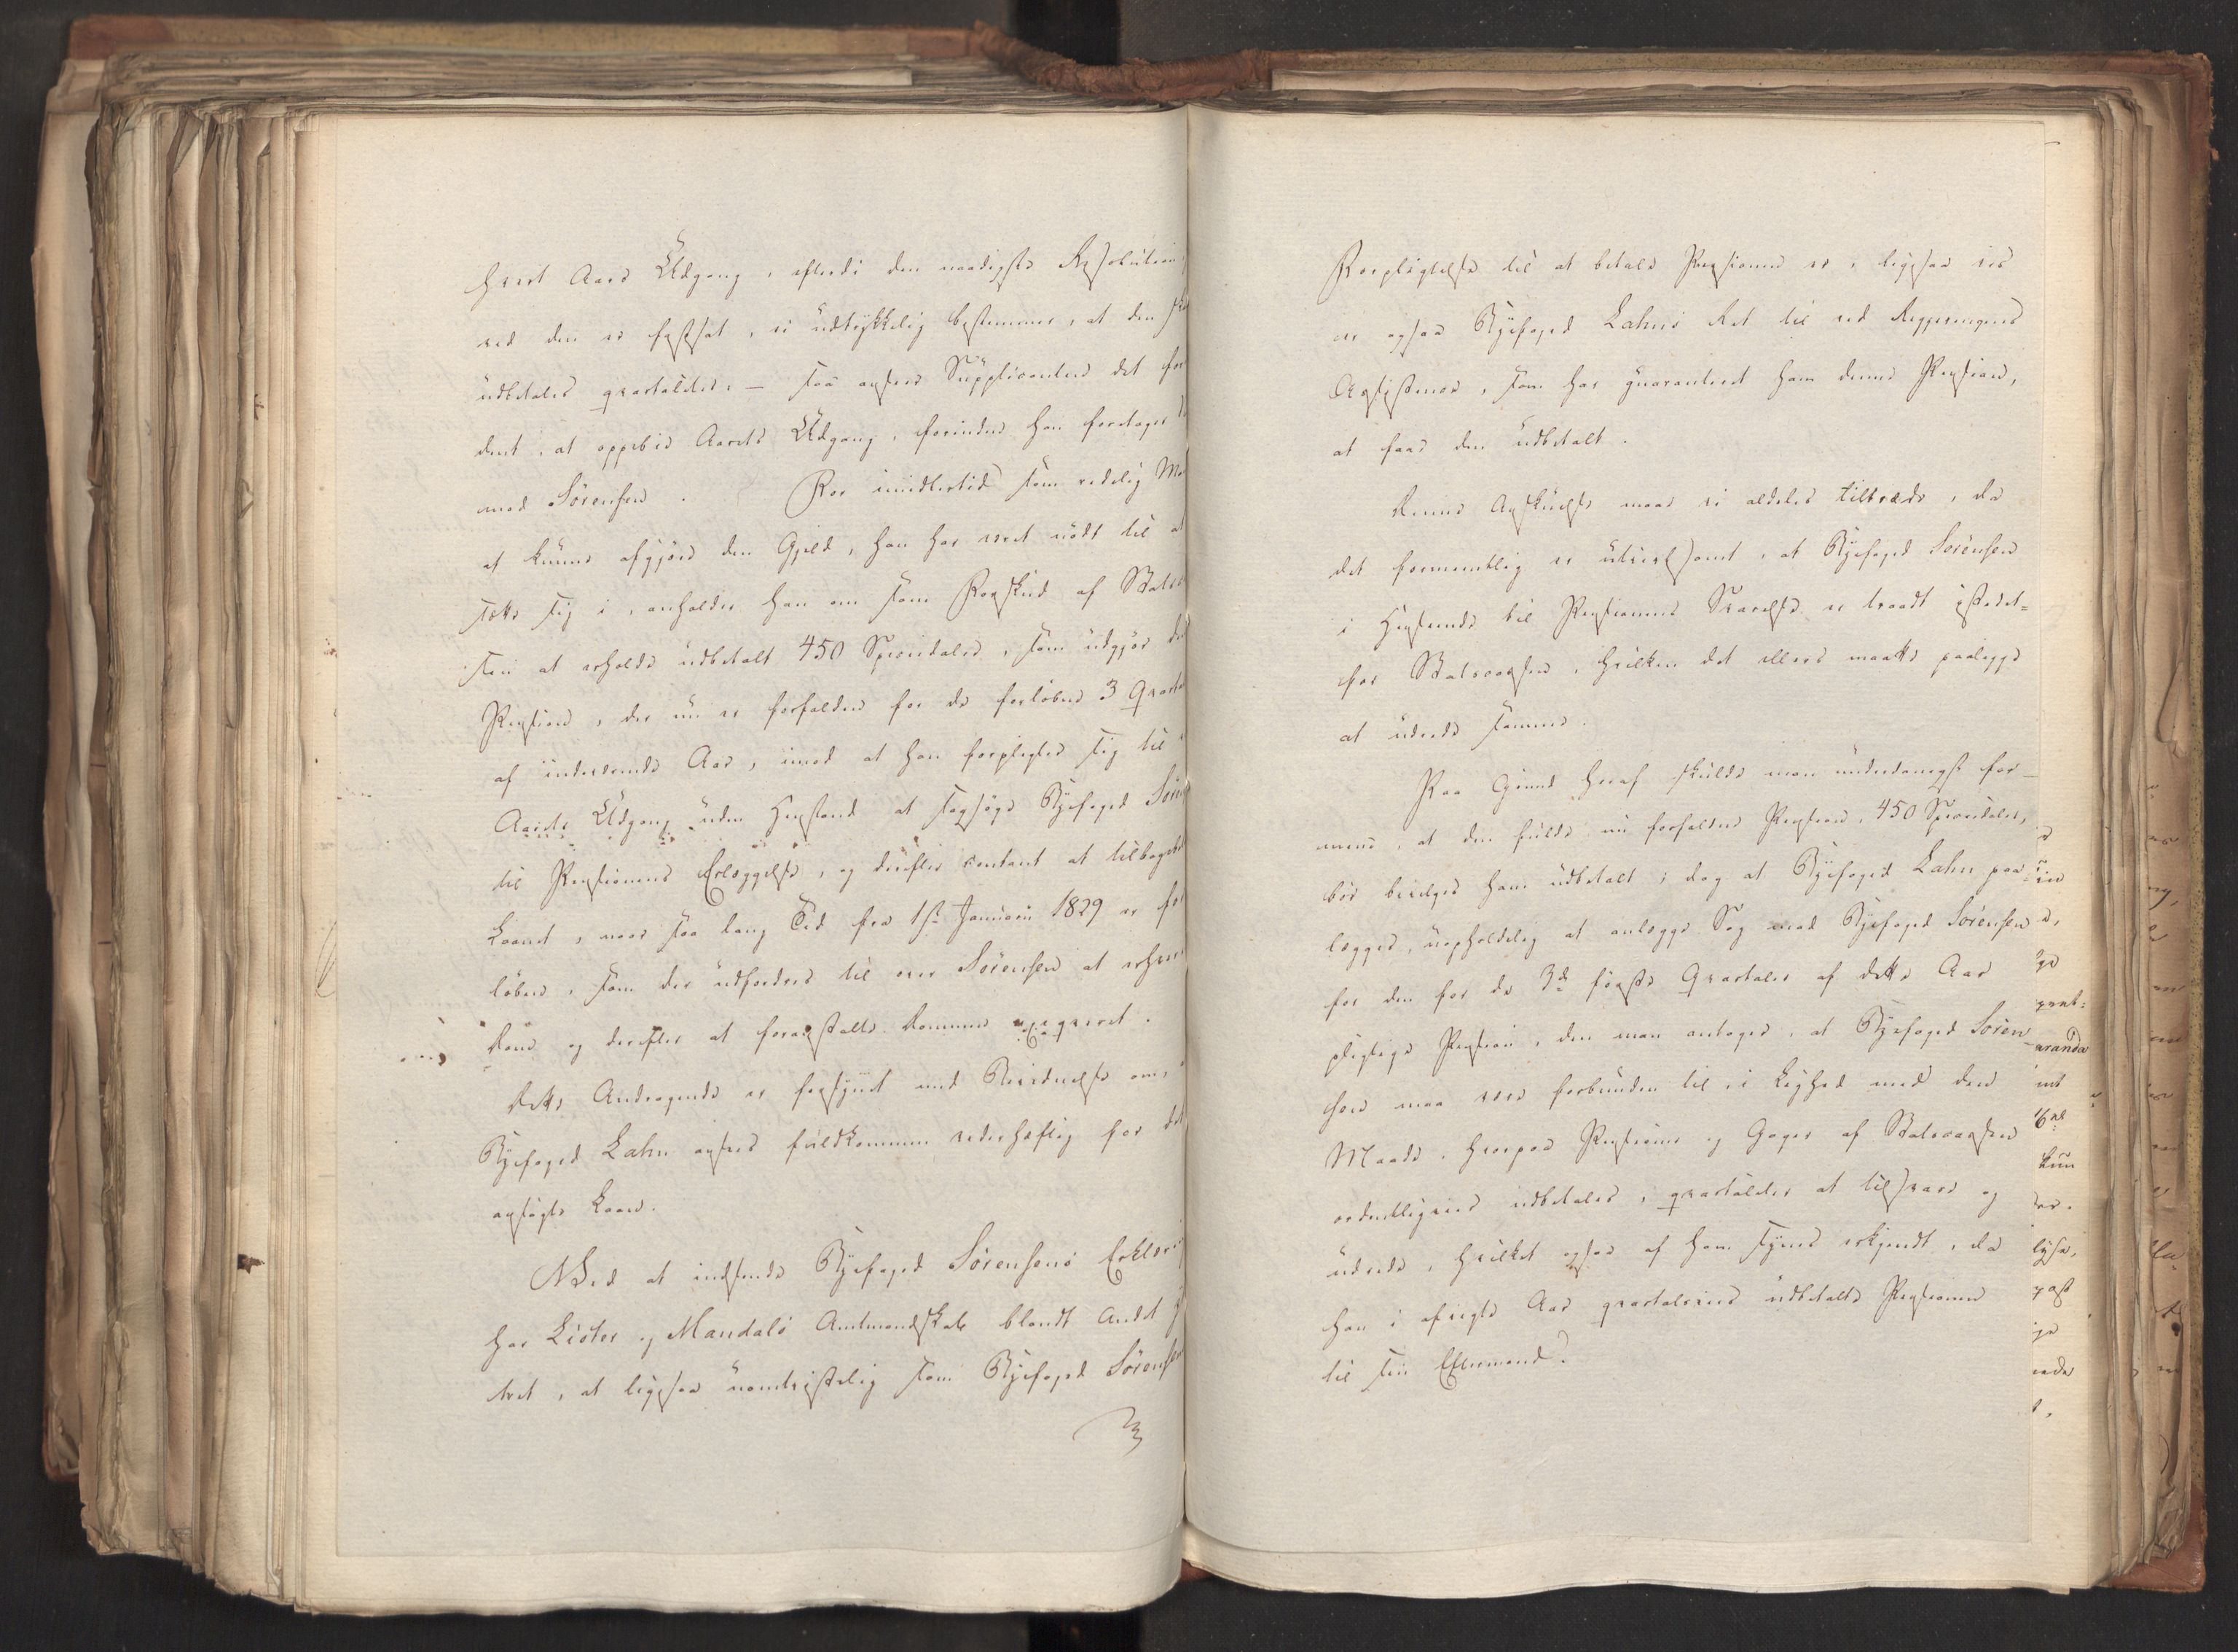 hvert Aars Udgang, efterdi den naadigste Resolution,
ved den er fastsat, ei udtrykkelig bestemmer, at den skal
udbetales qvartaliter, — saa ansees Supplicanten det for
at oppebie Aarets Udgang, forinden han foretager
mod Sörensen. For imidlertid som redelig Ma
at kunne afgjöre den Gjeld, han har været nödt til at
sætte sig i, anholder han om som Forskud af Stats
sen at erholde udbetalt 450 Speciedaler, som udgjör den
Pension, der nu er forfalden for de forlöbne 3 Qvarta
af indeværende Aar, imod at han forpligter sig til
Aarets Udgang uden Henstand at sagsöge Byefoged Sören
til Pensionens Erlæggelse, og derefter contant at tilbagebet
Laanet, naar saa lang Tid fra 1ste Januarii 1829 er for
löben, som der udfordres til over Sörensen at erhver
Dom og derefter at foranstalte Dommen exeqveret.
Dette Andragende er forsynet med Bevidnelse om,
Byefoged Lahn ansees fuldkommen vederhæftig for det
ansögte Laan.
Ved at indsende Byefoged Sörensens Erklæring
har Lister og Mandals Amtmandskab blandt Andet
tret, at ligesaa uomtvistelig som Byefoged Sörensens
Forpligtelse til at betale Pensionen er, ligesaa vis
er ogsaa Byefoged Lahns Ret til ved Regjeringens
Assistence, som har guaranteret ham denne Pension,
at faae den udbetalt.
Denne Anskuelse maae vi aldeles tiltræde, da
det formeentlig er utvivlsomt, at Byefoged Sörensen
i Henseende til Pensionens Svarelse er traadt istedet=
for Statscassen, hvilken det ellers maatte paaligge
at udrede samme.
Paa Grund heraf skulde man underdanigst for-
mene, at den fulde nu forfaldne Pension, 450 Speciedaler,
bör bevilges ham udbetalt; dog at Byefoged Lahn paa-
lægges, uopholdelig at anlægge Sag mod Byefoged Sörensen
for den for de 3de förste Qvartaler af dette Aar
pligtige Pension, den man antager, at Byefoged Sören-
sen maa være forbunden til, i Lighed med den
Maade, hvorpaa Pensioner og Gager af Statscassen
ordentligviis udbetales, qvartaliter at tilsvare og
udrede, hvilket ogsaa af ham synes erkjendt, da
han i afvigte Aar qvartalsviis udbetalte Pensionen
til sin Eftermand.